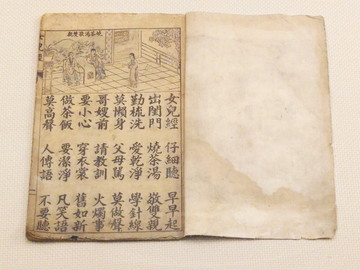 燒茶湯敬雙親
女兒經 仔細聽 早早起
出閨門 燒茶湯 敬雙親
勤梳洗 愛乾淨 學針線
莫懶身 父母罵 莫做聲
哥嫂前 請教訓 火燭事
要小心 穿衣裳 舊如新
做茶飯 要潔淨 凡笑語
莫高聲 人傳語 不要聽